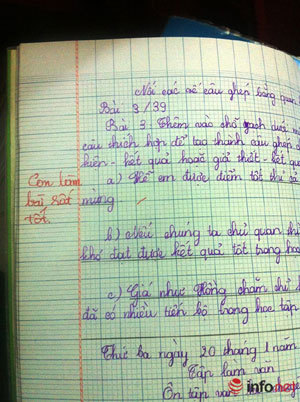 Nối các vế câu ghép bằng quan
Bài 3/39
Bài 3: Thêm vào chỗ gạch dưới
câu thích hợp để tạo thành câu ghép
kiện - kết quả hoặc giả thiết - kết quả
Con làm
bài rất
tốt.
a) Nếu em được điểm tốt thì cả
mừng.
b) Nếu chúng ta chủ quan thì
khó đạt được kết quả tốt trong học
c) Giá như Hồng chăm chỉ
đã có nhiều tiến bộ trong học tập
Thứ ba ngày 20 tháng 1 năm
Tập làm văn
Ôn tập văn
infonet